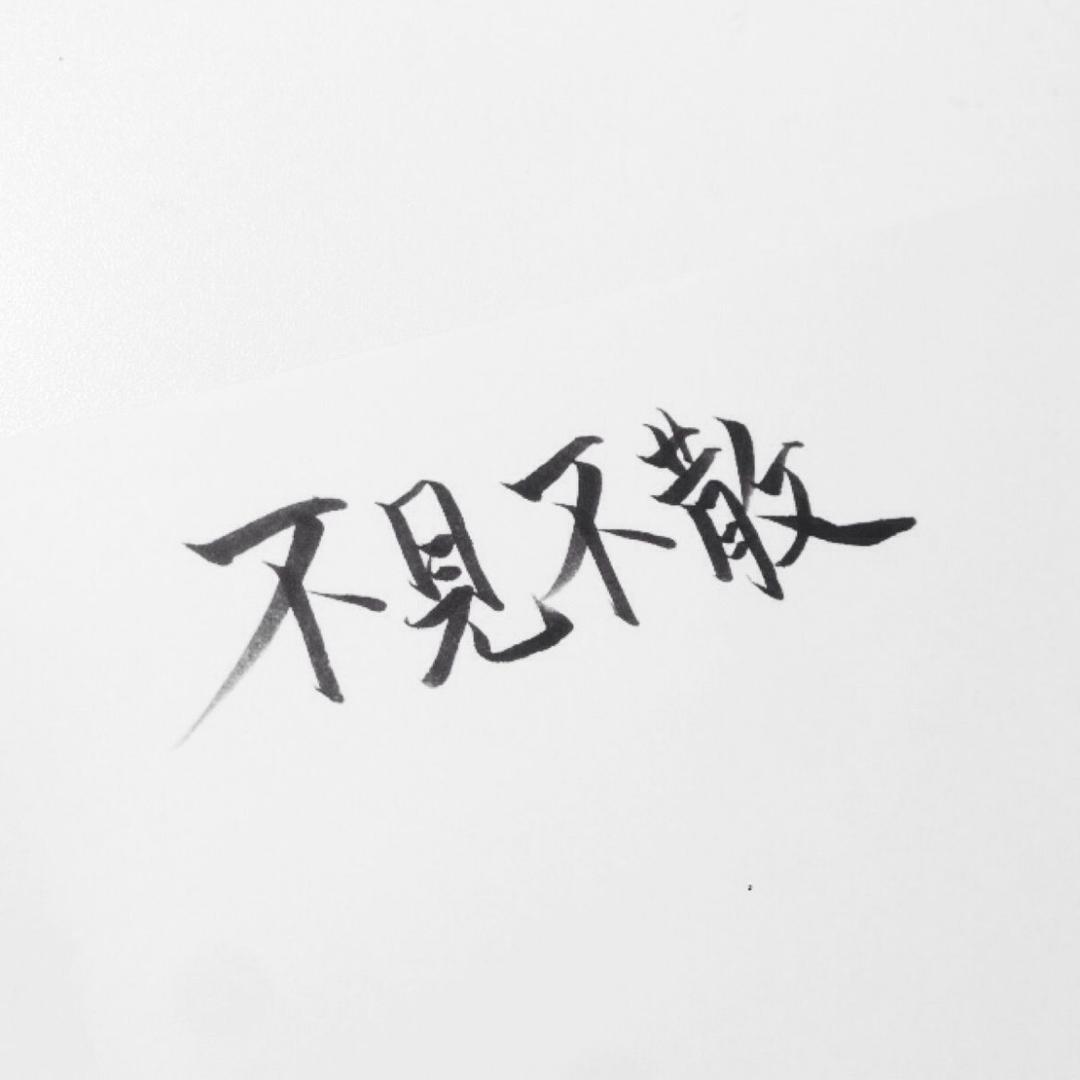 不見不散